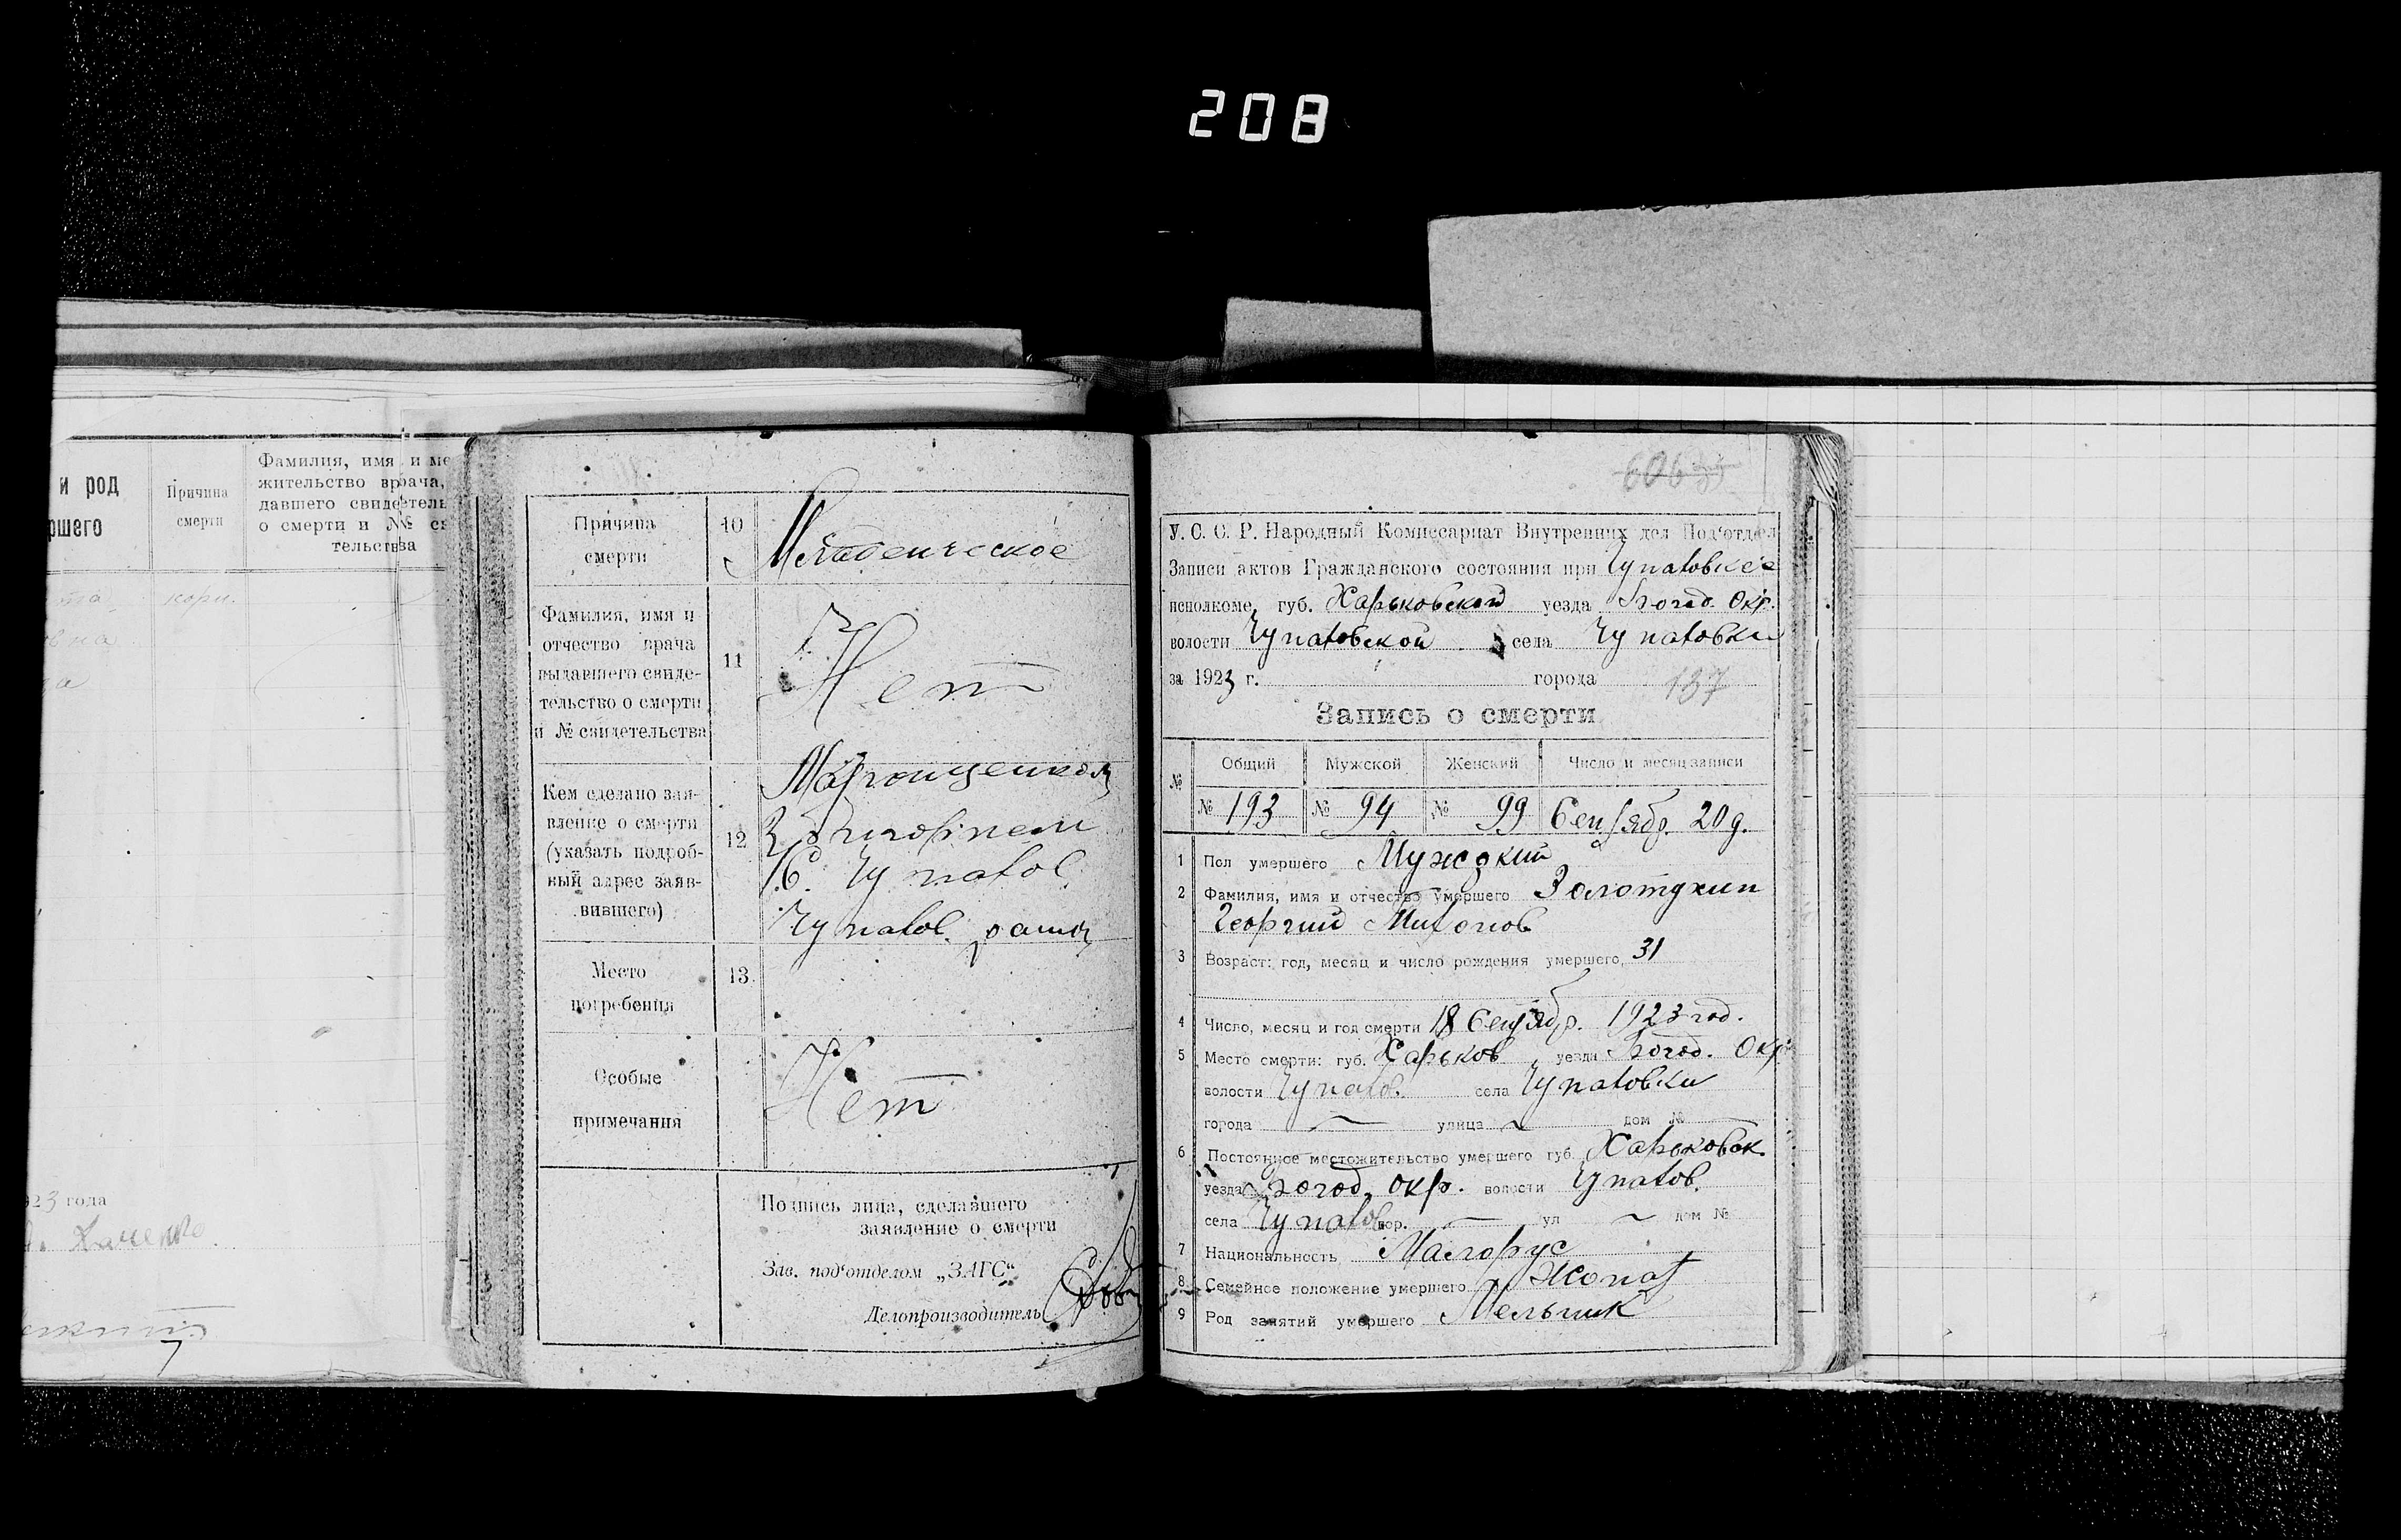 208
и род
ршего
Причина
смерти
Фамилия, имя и ме
жительство врача,
давшего свидетель
о смерти и №№ св
тельства
кори.
923 года
Причина
смерти
10
Младенческое
Фамилия, имя и
отчество врача
выдавшего свиде-
тельство о смерти
и № свидетельства
11
Нет
Кем сделано зая-
вление о смерти
(указать подроб-
ный адрес заяв-
вившего)
12
С. Чупатов.
Чупатов.
Место
погребения
13.
Особые
примечания
Нет
Подпись лица, сделавшего
заявление о смерти
Зав. под'отделом „ЗАГС“
Делопроизводитель
606
У. С. С. Р. Народный Комиссариат Внутренних дел Под'отдел
Записи актов Гражданского состояния при Чупатовке
исполкоме, губ. Харьковской уезда Богод. Окр.
волости Чупатовской села Чупатовки
за 1923 г. города 137
Запись о смерти
№ Общий Мужской Женский Число и месяц записи
№ 193 № 94 № 99 Сентябр. 20 д.
1 Пол умершего Мужский
2 Фамилия, имя и отчество умершего Золотухин
Георгий Митонов
3 Возраст: год, месяц и число рождения умершего, 31
4 Число, месяц и год смерти 18 Сентябр. 1923 год.
5 Место смерти: губ. Харьков, уезда Богод. Окр
волости Чупатов. села Чупатовки
города — улица дом №
6 Постоянное местожительство умершего губ. Харьковск.
уезда Богод. окр. волости Чупатов.
села Чупатов гор. — ул дом №
7 Национальность Малорус
8 Семейное положение умершего Жонат
9 Род занятий умершего Мельник